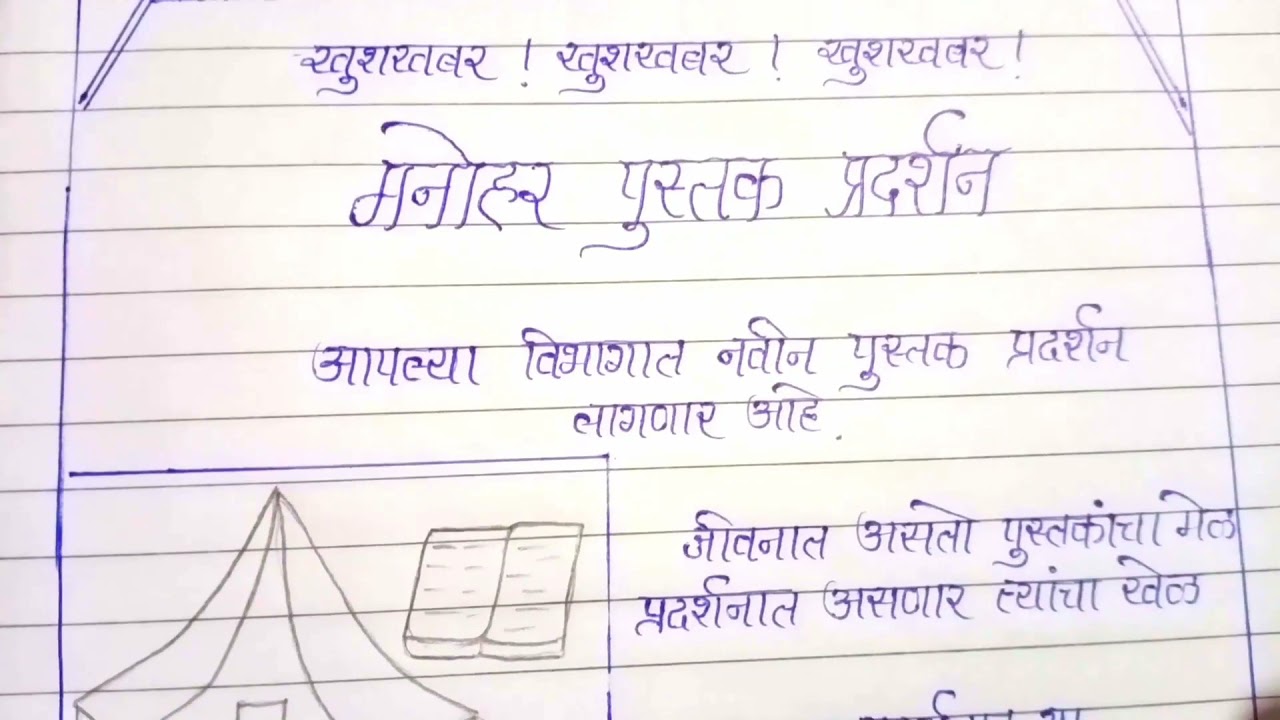 खुशखबर ! खुशखबर ! खुशखबर !
मनोहर पुस्तक प्रदर्शन
आपल्या विभागात नवीन पुस्तक प्रदर्शन
लागणार आहे.
जीवनात असतो पुस्तकांचा मेळ
प्रदर्शनात असणार त्यांचा खेळ